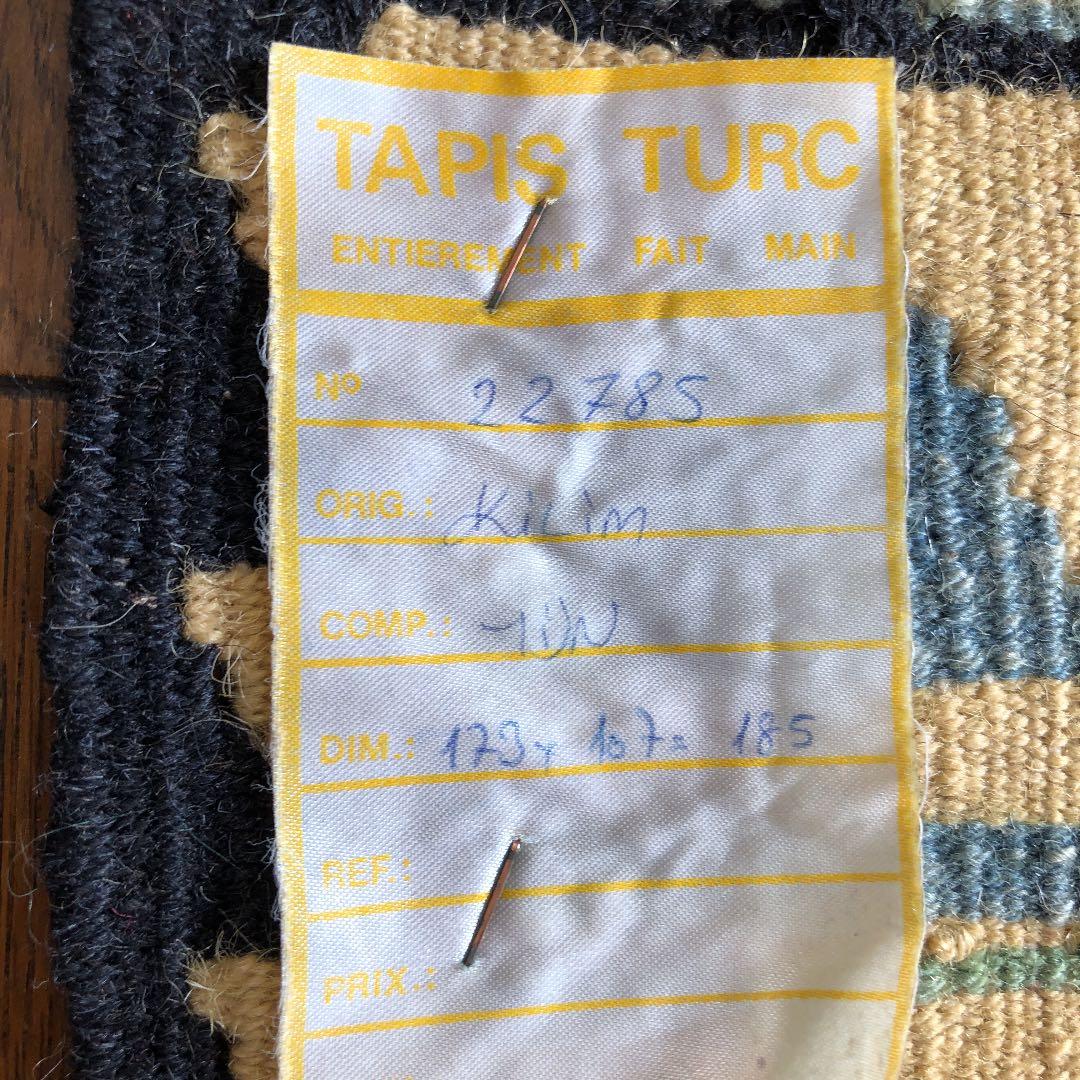 TAPIS TURC
ENTIEREMENT FAIT MAIN
Nº 22785
ORIG.: Kilim
COMP.: YÜN
DIM.: 173x 107= 185
REF.:
PRIX.: